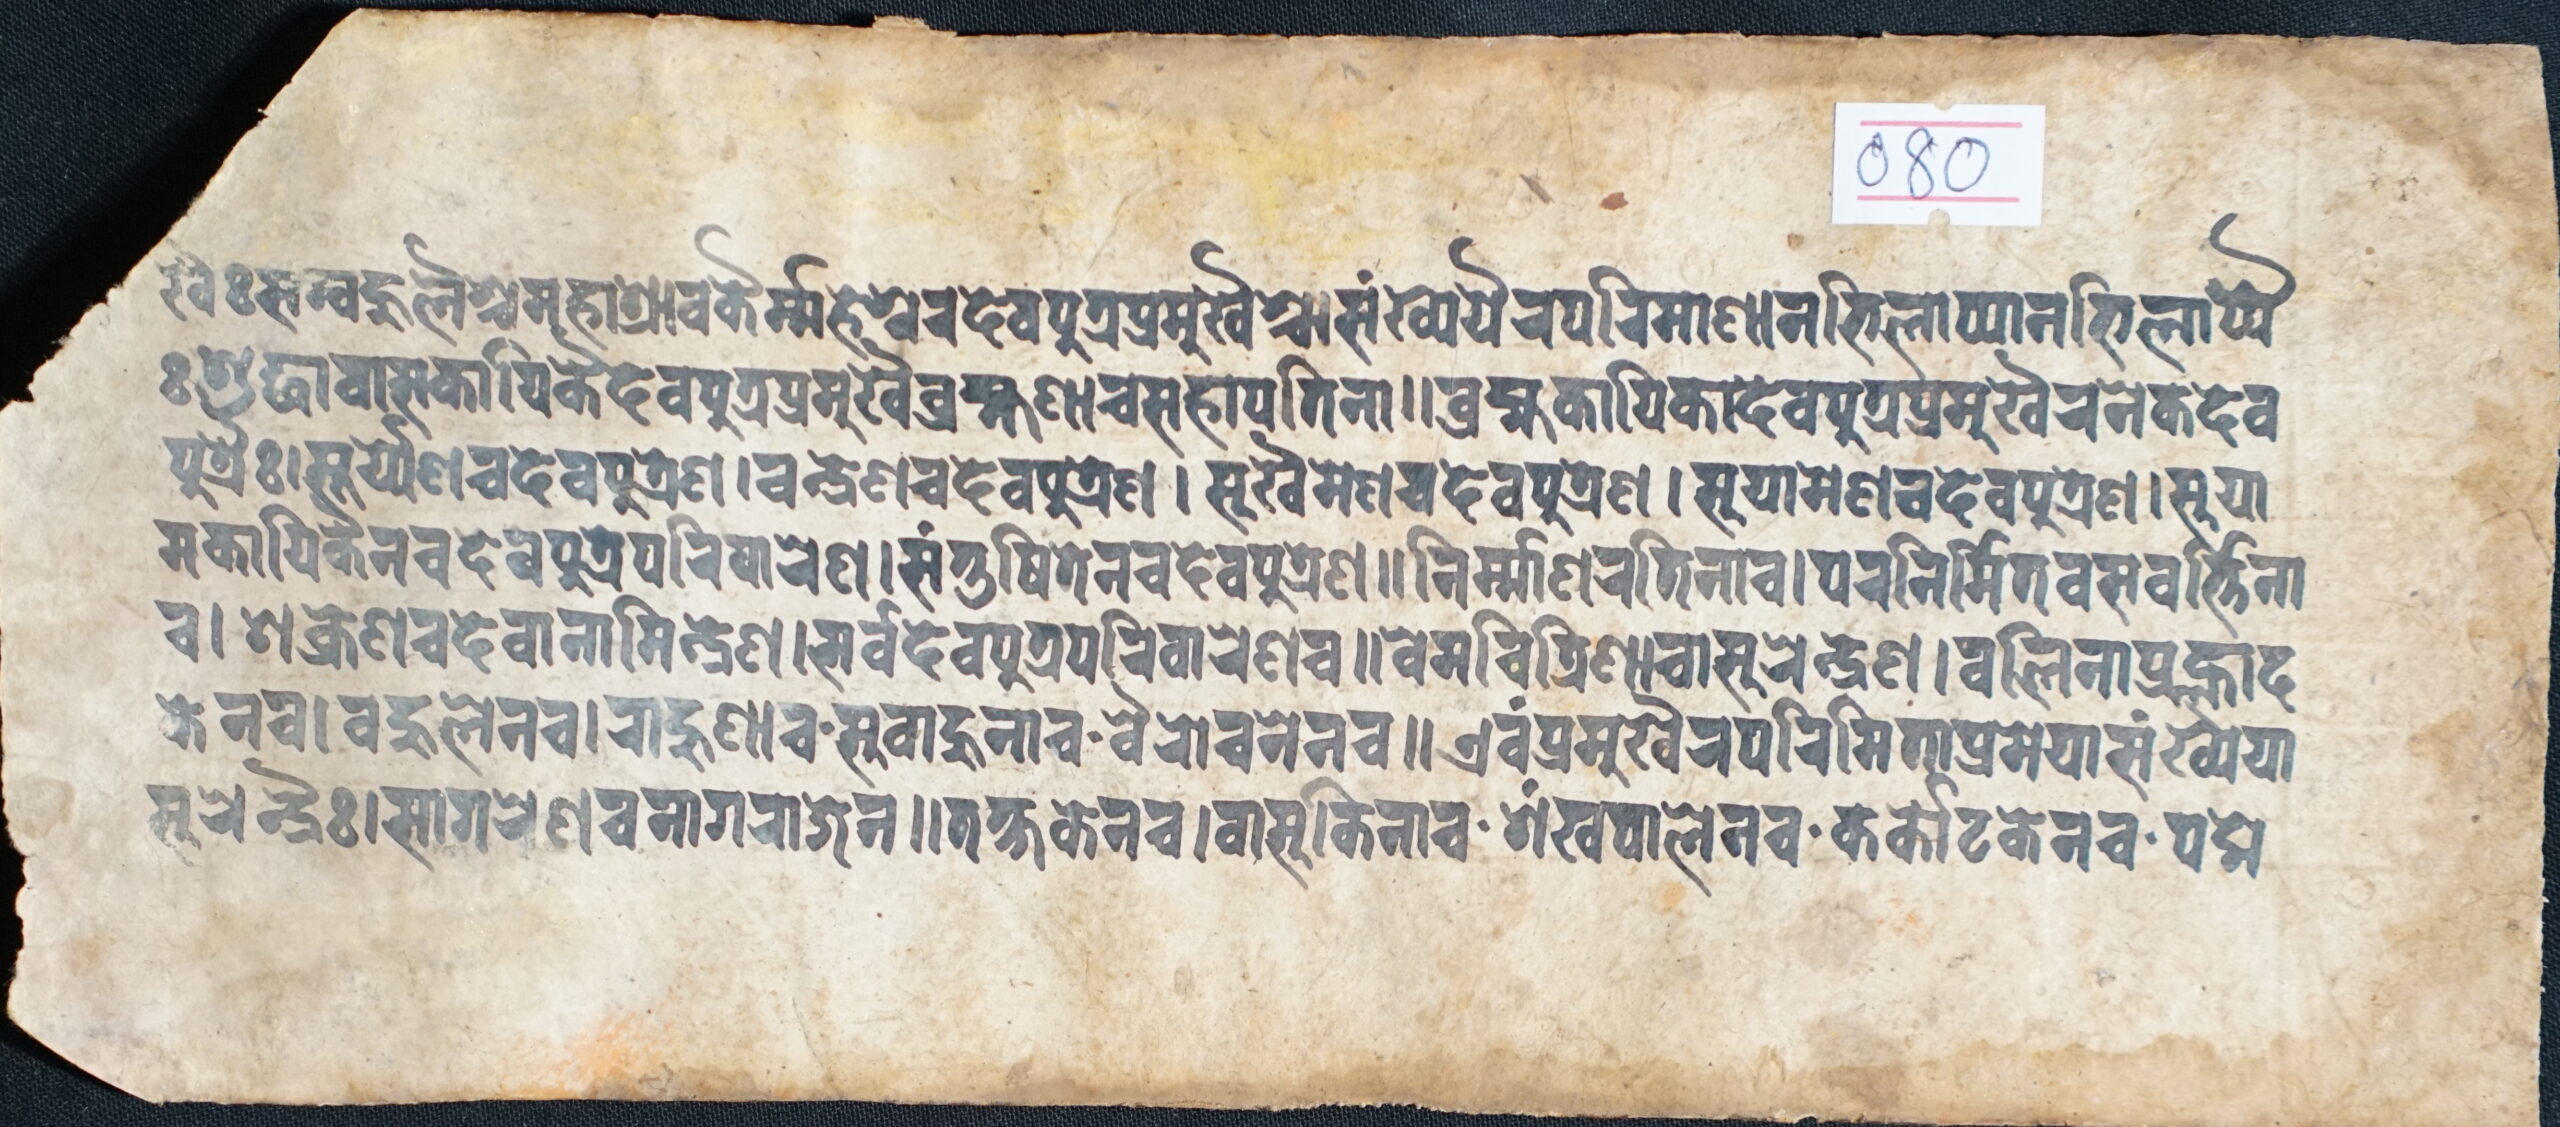 080
खैः सम्बहुलैश्चमहाश्रावकैर्म्महेश्वरदेवपुत्रप्रमुखैश्चासंख्येयैरपरिमाणानभिलाप्यानभिलाप्यै
ःशुद्धावासकायिकैदेवपुत्रप्रमुखैव्रह्मणाचसहापतिना॥व्रह्मकायिकादेवपुत्रप्रमुखैरनेकदेव
पुत्रैः।सूर्य्येणचदेवपुत्रेण।चन्द्रेणचदेवपुत्रेण।सुखैमेणचदेवपुत्रेण।सूयामेणचदेवपुत्रेण।सूया
मकायिकैनचदेवपुत्रपरिवारेण।संतुषितेनचदेवपुत्रेण॥निर्म्माणरतिनाच।परनिर्मितवसवर्त्तिना
च।शक्रेणचदेवानामिन्द्रेण।सर्वदेवपुत्रपरिवारेणच॥वेमचित्रिणाचासुरेन्द्रेण।वलिनाप्रह्लाद
केनच।वहुलेनच।राहुणाच·सुवाहुनाच·वैरोचनेनच॥एवंप्रमुखैरपरिमिताप्रमेयासंख्येया
सुरेन्द्रैः।सागरेणचनागराजेन॥तक्षकेनच।वासुकिनाच·शंखपालेनच·कर्कोटकेनच·पद्मे